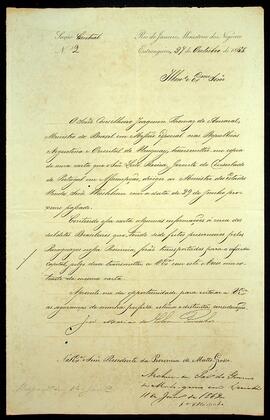 Secção Central
Nº 2
Rio de Janeiro. Ministerio dos Negocios
Estrangeiros, 27 de Outubro de 186
Illmo. e Exmo. Snr.
O Snr. Conselheiro Joaquim Thomaz do Amaral,
Ministro do Brasil em Missão Especial nas Republicas
Argentina e Oriental do Uruguay, transmittio-me copia
de uma carta que o Snr. Leite Pereira, Gerente do Consulado
de Portugal em Assumpção, dirigio ao Ministro dos Estados
Unidos, Snr. Washburn com a data de 29 de Junho pro
ximo passado.
Contendo essa carta algumas informações a cerca dos
subditos Brasileiros que, tendo sido feitos prisioneiros pelos
Paraguayos nessa Provincia, forão transportados para a referida
capital, julgo dever transmittir a V. Exa. com este Aviso
da mesma carta.
Aproveito-me da opportunidade para reiterar a V. Exa.
as seguranças de minha perfeita estima e distincta consideração.
José Maria da Silva Paranhos
A S. Exa. o Snr. Presidente da Provincia de Matto Grosso